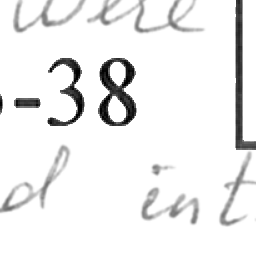 were
-38
d int